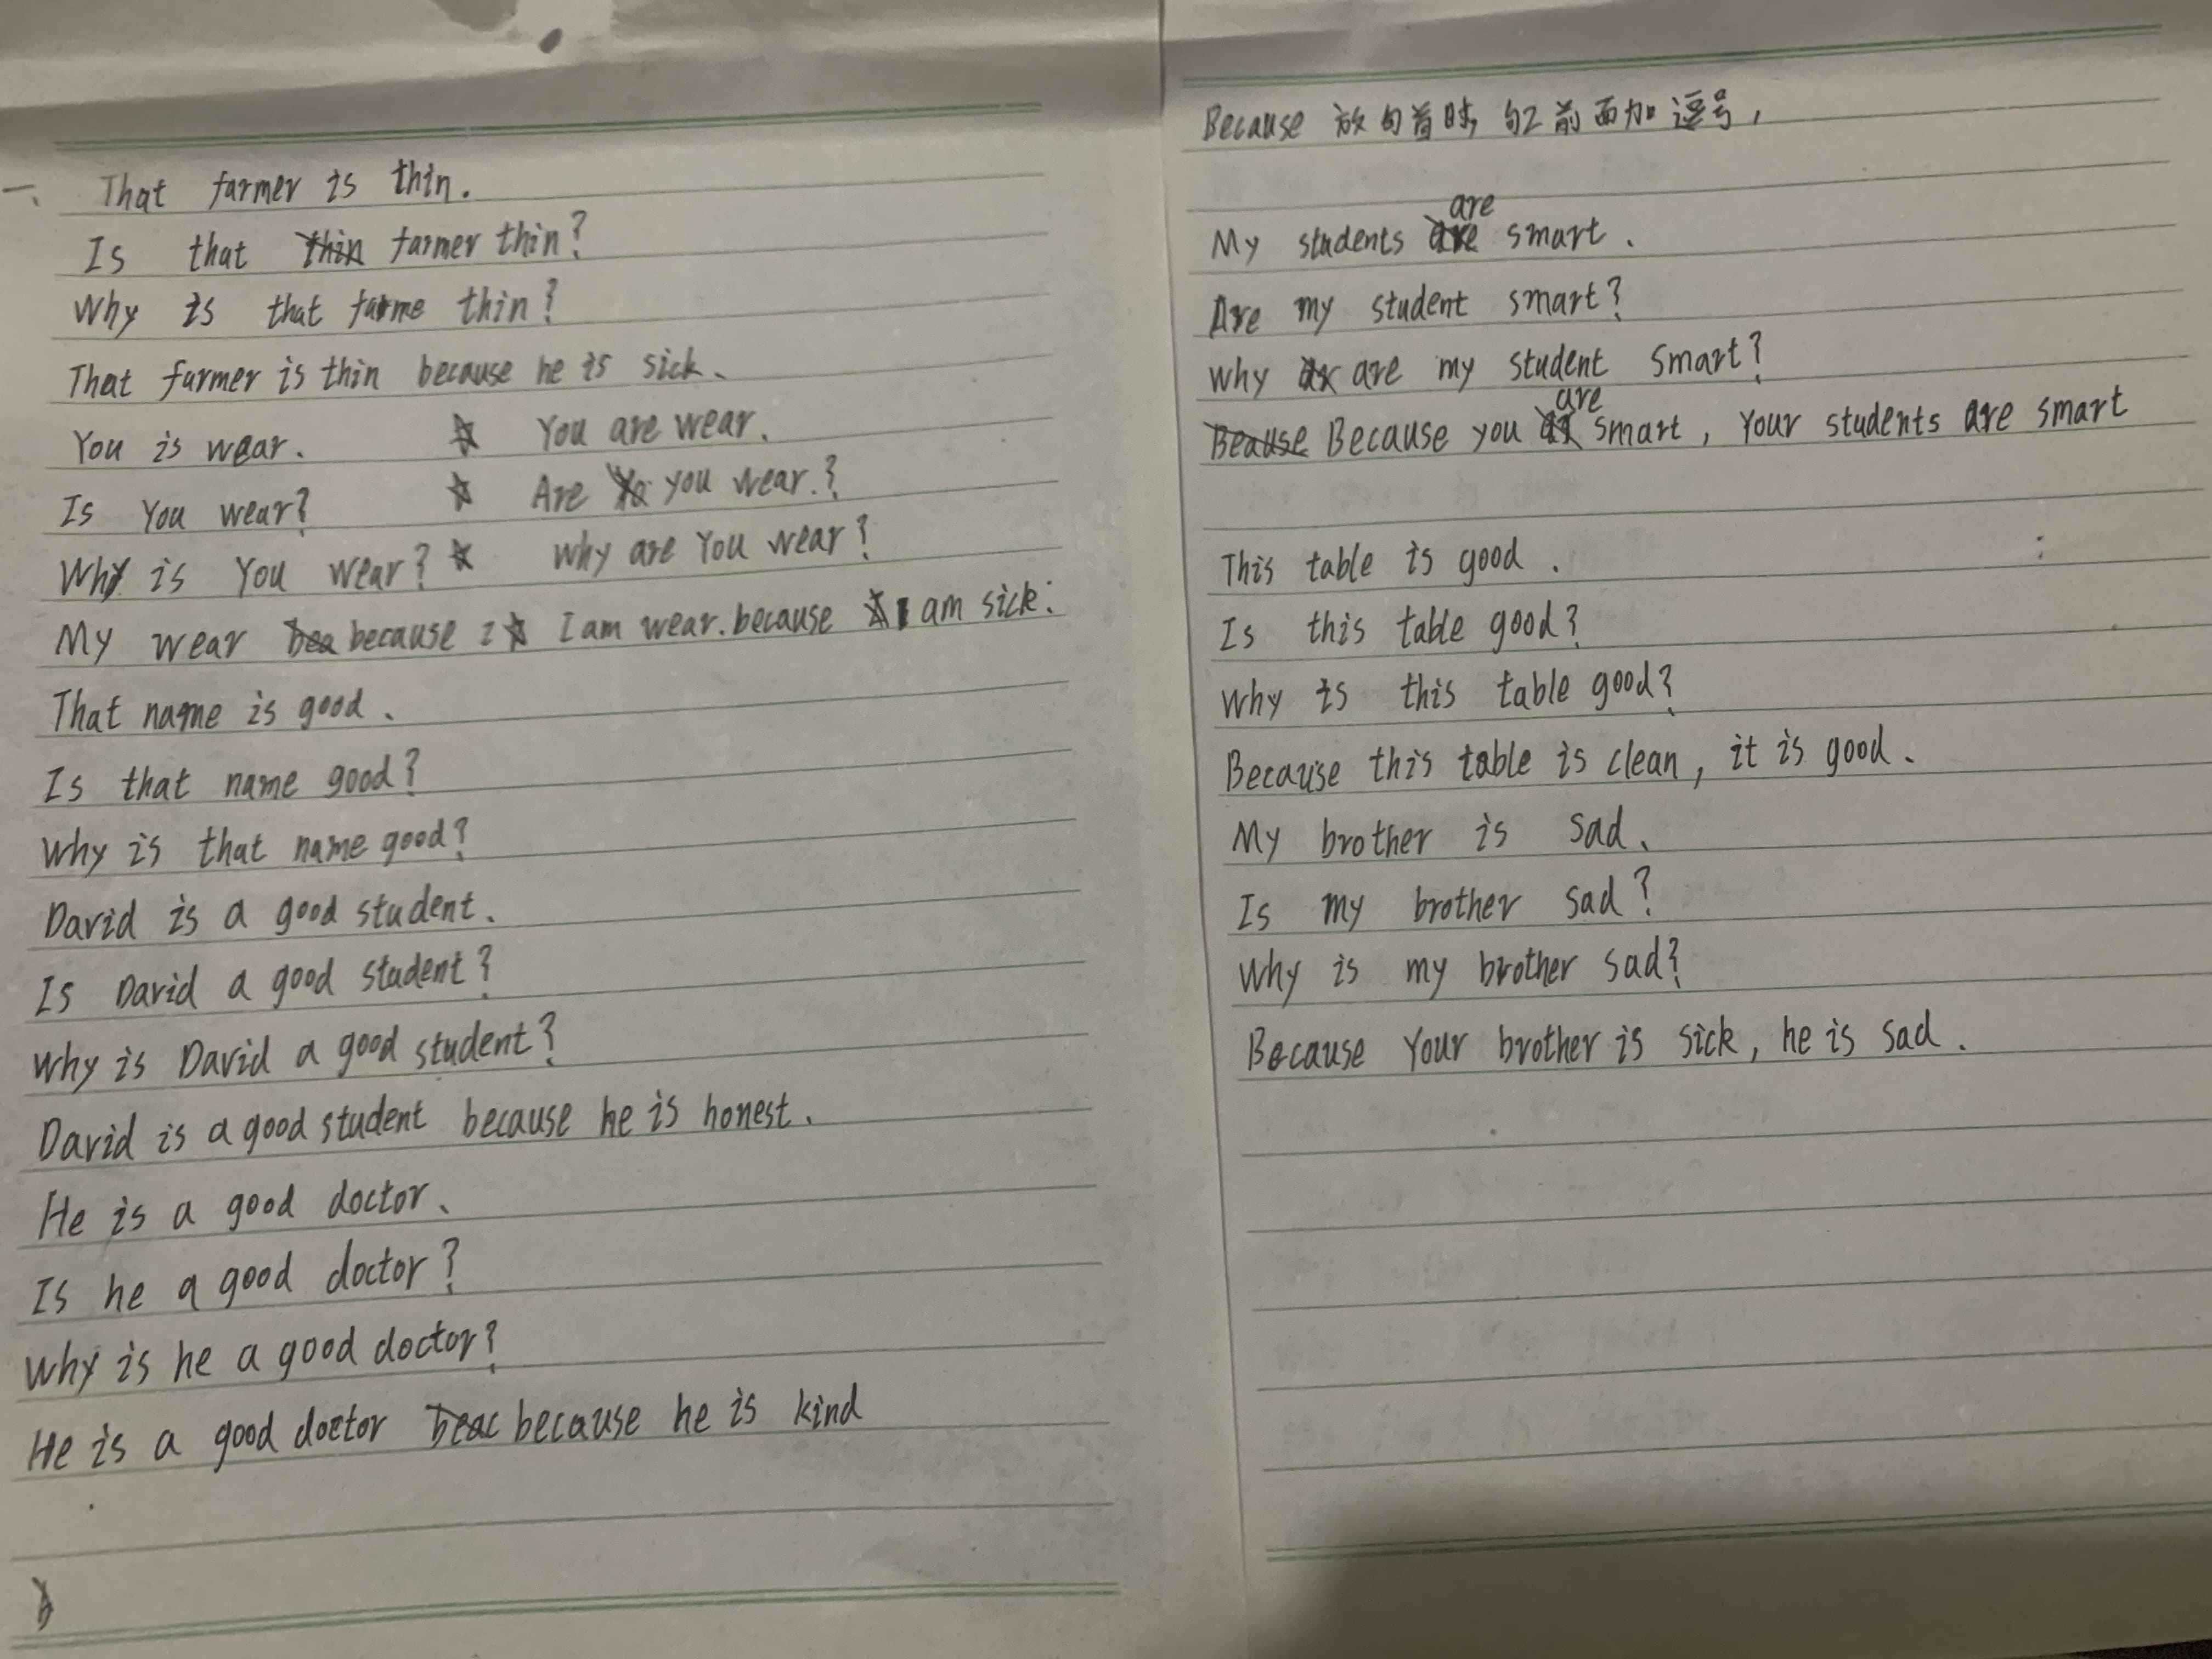 一、 That farmer is thin.
Is that thin farmer thin?
Why is that farme thin?
That farmer is thin because he is sick.
You is wear. ☆ You are wear.
Is You wear? ☆ Are Yo you wear.?
Why is You wear? ☆ Why are You wear?
My wear bea because I ☆ I am wear. because I am sick.
That name is good.
Is that name good?
Why is that name good?
David is a good student.
Is David a good student?
Why is David a good student?
David is a good student because he is honest.
He is a good doctor.
Is he a good doctor?
Why is he a good doctor?
He is a good doctor beac because he is kind
Because 放句首时, 句2前面加逗号,
My students are are smart.
Are my student smart?
Why are my student smart?
Beause Because you are smart, Your students are smart
This table is good.
Is this table good?
Why is this table good?
Because this table is clean, it is good.
My brother is sad.
Is my brother sad?
Why is my brother sad?
Because Your brother is sick, he is sad.